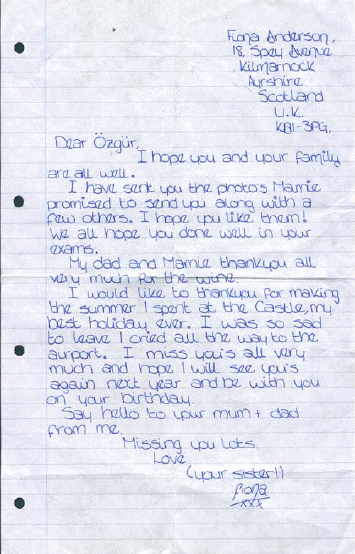 Fiona Anderson,
18, Spey Avenue
Kilmarnock
Ayrshire
Scotland
U.K.
KB1-3PG.
Dear Özgür,
I hope you and your family
are all well.
I have sent you the photo's Mamie
promised to send you along with a
few others. I hope you like them!
We all hope you done well in your
exams.
My dad and Mamie thankyou all
very much for the wine.
I would like to thankyou for making
the summer I spent at the Castle, my
best holiday ever. I was so sad
to leave I cried all the way to the
airport. I miss you's all very
much and hope I will see you's
again next year and be with you
on your birthday.
Say hello to your mum + dad
from me.
Missing you lots
Love
(your sister!)
Fiona
xxx